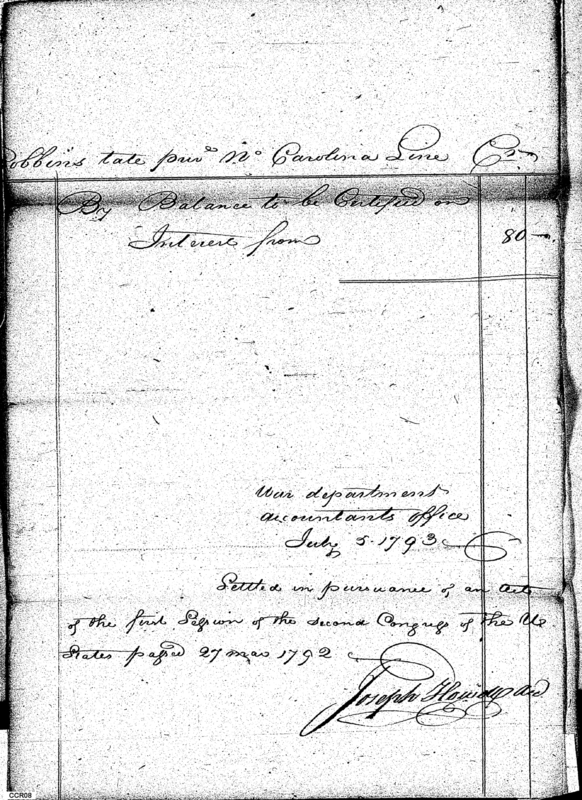 obbins late priv.e No Carolina Line Cr
By Balance to be Certified on
Interest from 80 —
War department
accountants office
July 5. 1793
Settled in pursuance of an Act
of the first Session of the second Congress of the Ud
States passed 27 mar 1792
Joseph Howell
CCR08